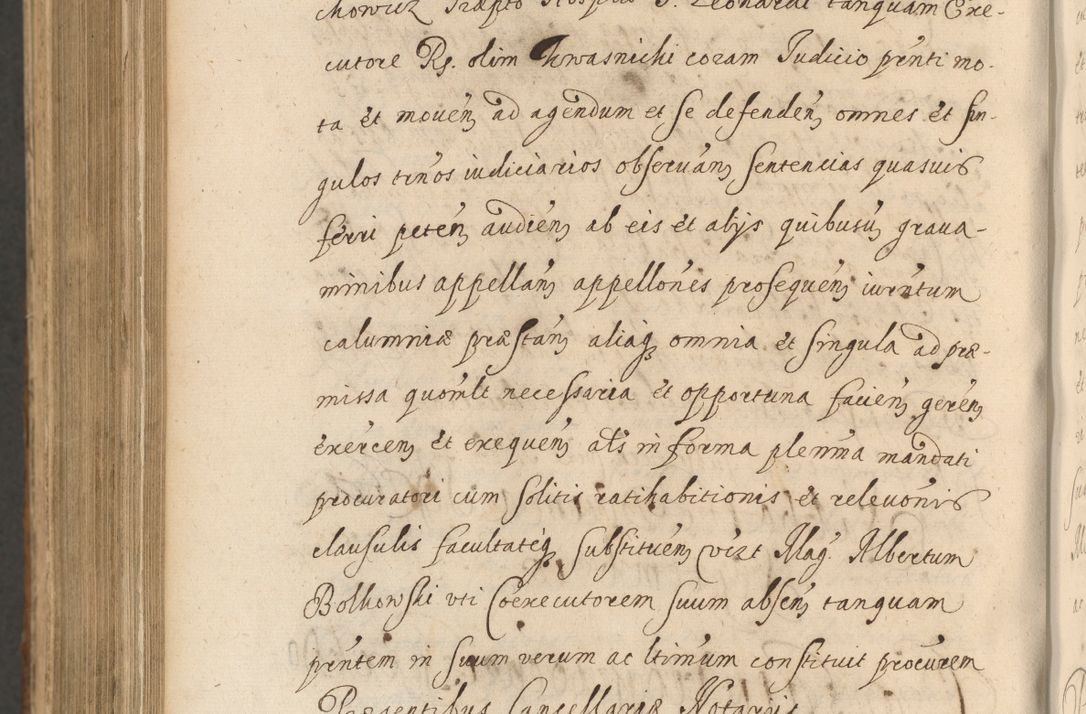 chowicz Præpto Hospis S. Leonardi tanquam Exe-
cutore Rf. olim Kwasnicki coram Judicio pñti mo-
ta et moueñ ad agendum et se defendeñ omnes et sin-
gulos tiños iudiciarios obseruañ sentencias quasuis
ferri peteñ audieñ ab eis et alijs quibusuis graua-
minibus appellañ appelloñes prosequeñ iurñtum
calumniæ præstañ aliaq omnia et singula ad præ-
missa quomlt necessaria et opportuna facieñ gereñ
exerceñ et exequeñ als in forma pleniña mandati
procuratori cum solitis ratihabitionis et releuoñis
clausulis facultateq substitueñ vizt Mag. Albertum
Bolkowski vti Coexecutorem suum abseñ tanquam
pñtem in suum verum ac ltimum constituit procurem
Præsentibus Cancellariæ Notarijs